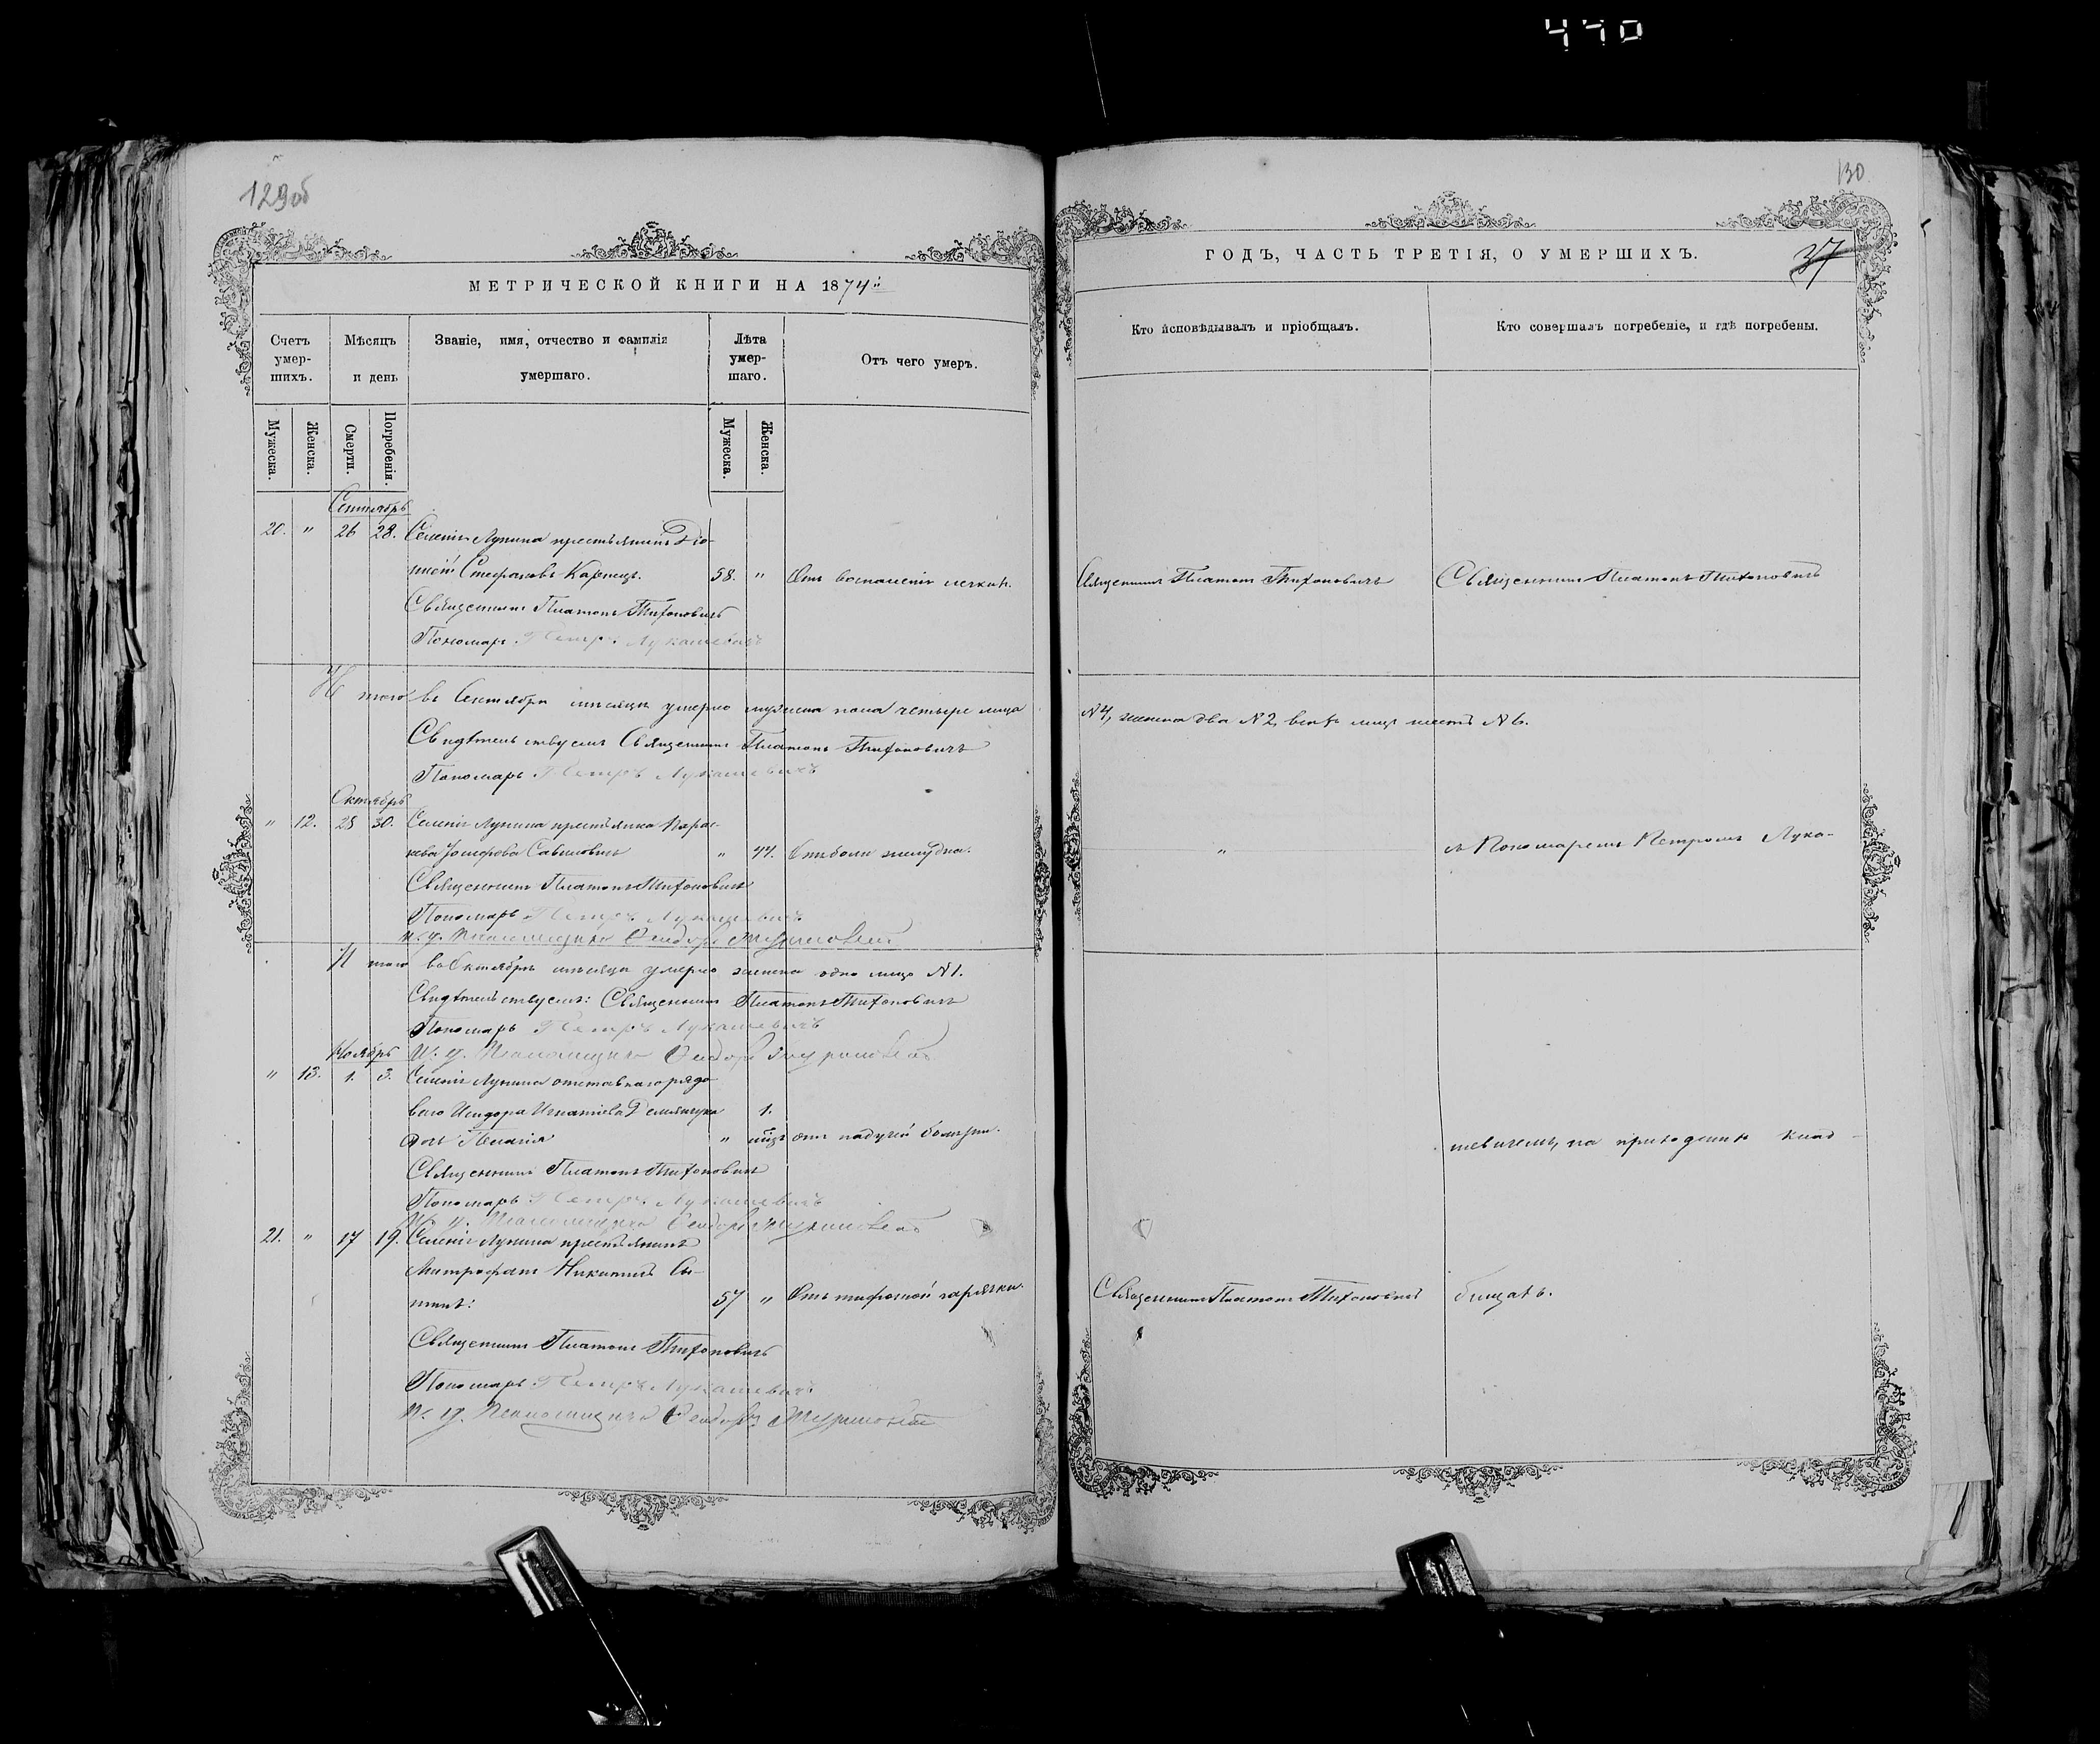 440
129об
МЕТРИЧЕСКОЙ КНИГИ НА 1874й
Счетъ умер-шихъ.
Мѣсяцъ и день
Званіе, имя, отчество и фамилія умершаго.
Лѣта умер-шаго.
Отъ чего умеръ.
Мужеска.
Женска.
Смерти.
Погребенія.
Мужеска.
Женска.
Сентябрь
20. " 26 28. Селенія Лунина крестьянинъ Діо-
нисій Стефановъ Карпецъ. 58. " Отъ воспаленія легкихъ.
Священникъ Платонъ Тихоновичъ
Пономарь Петръ Лукашевичъ
Итого въ Сентябрѣ мѣсяцѣ умерло мужеска пола четыре лица
Свидѣтельствуемъ Священникъ Платонъ Тихоновичъ
Пономарь Петръ Лукашевичъ
Октябрь
" 12. 28 30. Селенія Лунина крестьянка Парас-
кева " 44. Отъ боли желудка.
Священникъ Платонъ Тихоновичъ
Пономарь Петръ Лукашевичъ
И. д. Псаломщика Феодоръ
Итого въ Октябрѣ мѣсяцѣ умерло женска одно лицо №1.
Свидѣтельствуемъ: Священникъ Платонъ Тихоновичъ
Пономарь Петръ Лукашевичъ
И. д. Псаломщика Феодоръ
Ноябрь
" 13. 1. 3. Селенія Лунина отставнаго рядо-
ваго Исидора Игнатіева Демянчука 1.
дочь Пелагія " отъ падучей болѣзни.
Священникъ Платонъ Тихоновичъ
Пономарь Петръ Лукашевичъ
И. д. Псаломщика Феодоръ
21. " 17 19. Селенія Лунина крестьянинъ
Митрофанъ Никитинъ
57 " Отъ тифозной горячки.
Священникъ Платонъ Тихоновичъ
Пономарь Петръ Лукашевичъ
И. д. Псаломщика Феодоръ
130
37
ГОДЪ, ЧАСТЬ ТРЕТІЯ, О УМЕРШИХЪ.
Кто исповѣдывалъ и пріобщалъ.
Кто совершалъ погребеніе, и гдѣ погребены.
Священникъ Платонъ Тихоновичъ
Священникъ Платонъ Тихоновичъ
№4, женска два №2, всѣхъ лицъ шесть №6.
"
съ Пономаремъ Петромъ Лука-
шевичемъ, на приходскомъ клад-
Священникъ Платонъ Тихоновичъ
бищахъ.